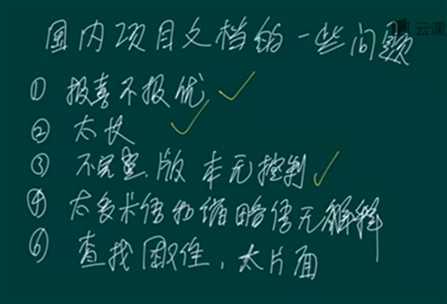 国内项目文档的一些问题
① 报喜不报优
② 太长
③ 不完整.版本无控制
④ 太多术语和缩略语无解释
⑥ 查找困难,太片面